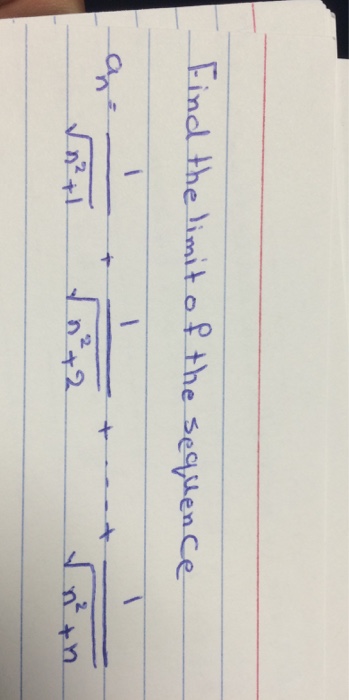 Find the limit of the sequence
aₙ = 1/√(n²+1) + 1/√(n²+2) + ---- + 1/√(n²+n)